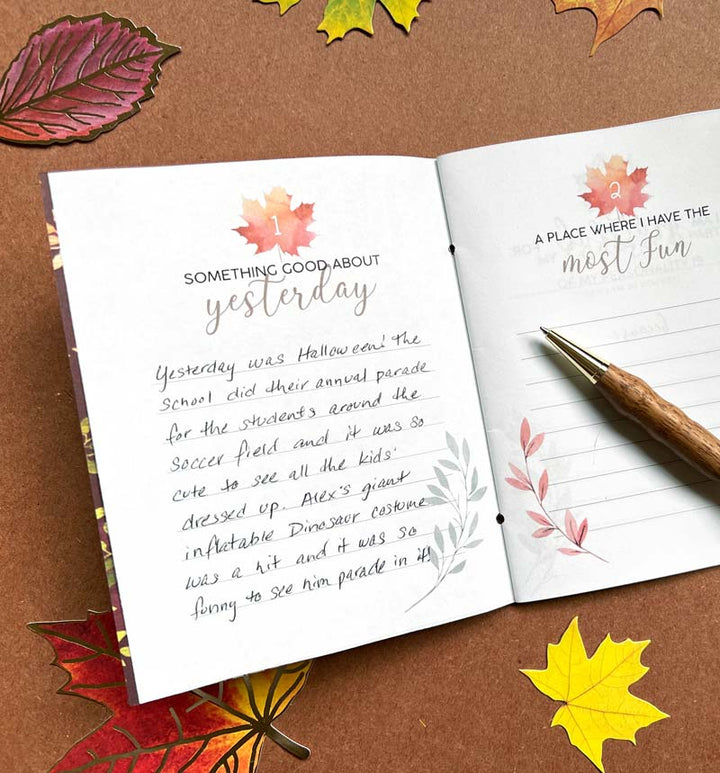 1
SOMETHING GOOD ABOUT
yesterday
Yesterday was Halloween! The
school did their annual parade
for the students around the
soccer field and it was so
cute to see all the kids'
dressed up. Alex's giant
inflatable Dinosaur costume
was a hit and it was so
funny to see him parade in it!
2
A PLACE WHERE I HAVE THE
most Fun